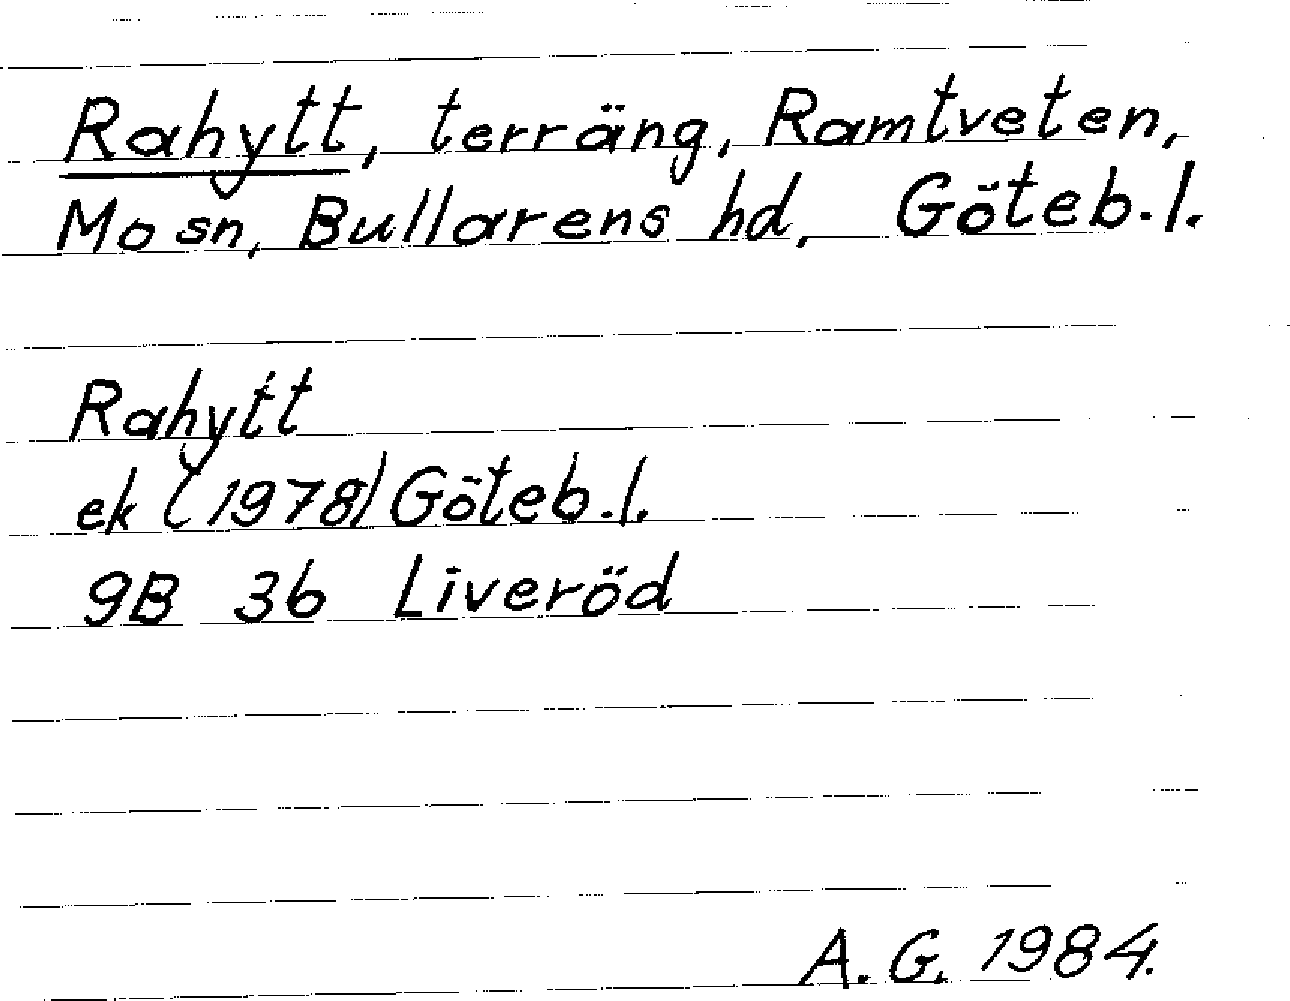 Rahytt, terräng, Ramtveten,
Mo sn, Bullarens hd, Göteb.l.
Rahytt
ek (1978) Göteb.l.
9B 3b Liveröd
A.G. 1984.